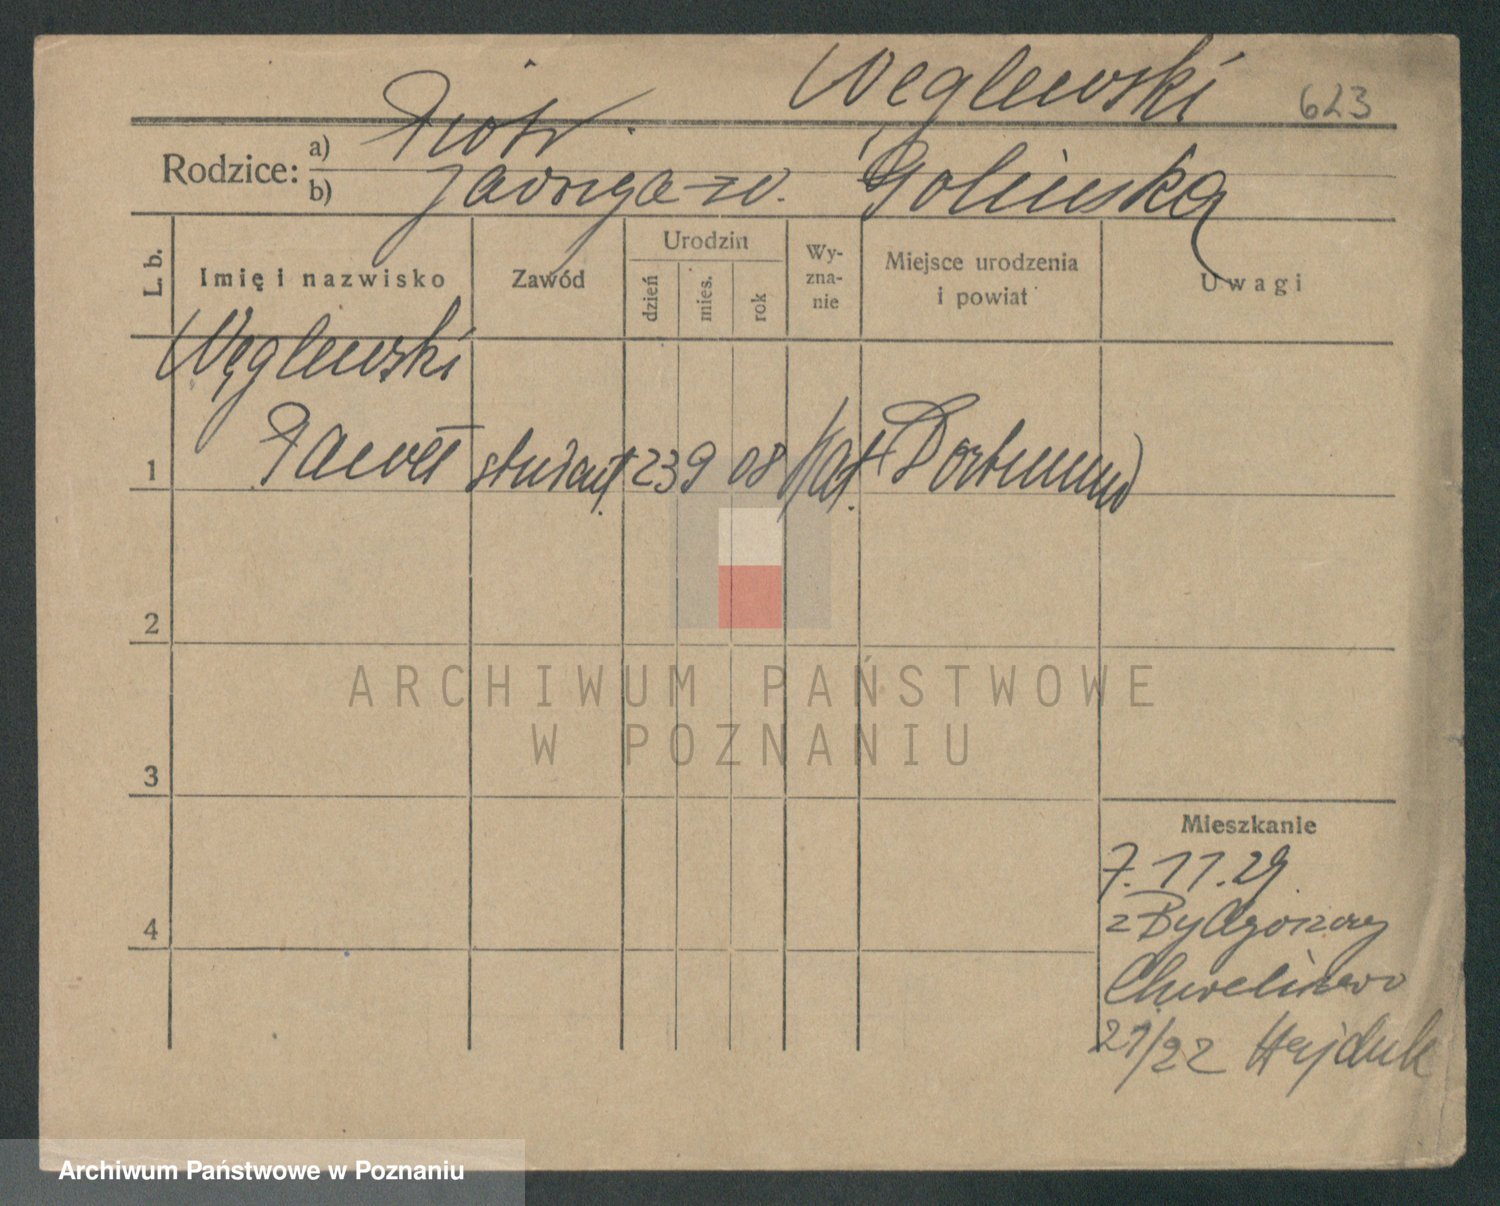 Węglewski 623
Rodzice: a) Piotr
b) Jadwiga z d. Golińska
L. b. Imię i nazwisko Zawód Urodzin dzień mies. rok Wy-zna-nie Miejsce urodzenia i powiat Uwagi
Węglewski
1 Paweł student 23 9 08 kat. Dortmund
2
3
4
Mieszkanie
7. 11. 29
z Bydgoszczy
21/22 Hajduk
ARCHIWUM PAŃSTWOWE
W POZNANIU
Archiwum Państwowe w Poznaniu